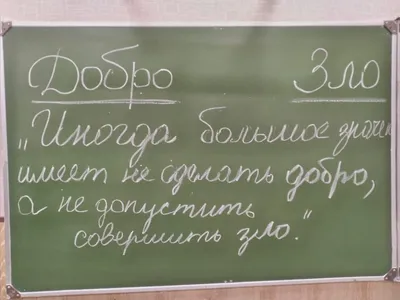 Добро Зло
„Иногда большое значен
имеет не сделать добро,
а не допустить
совершить зло."